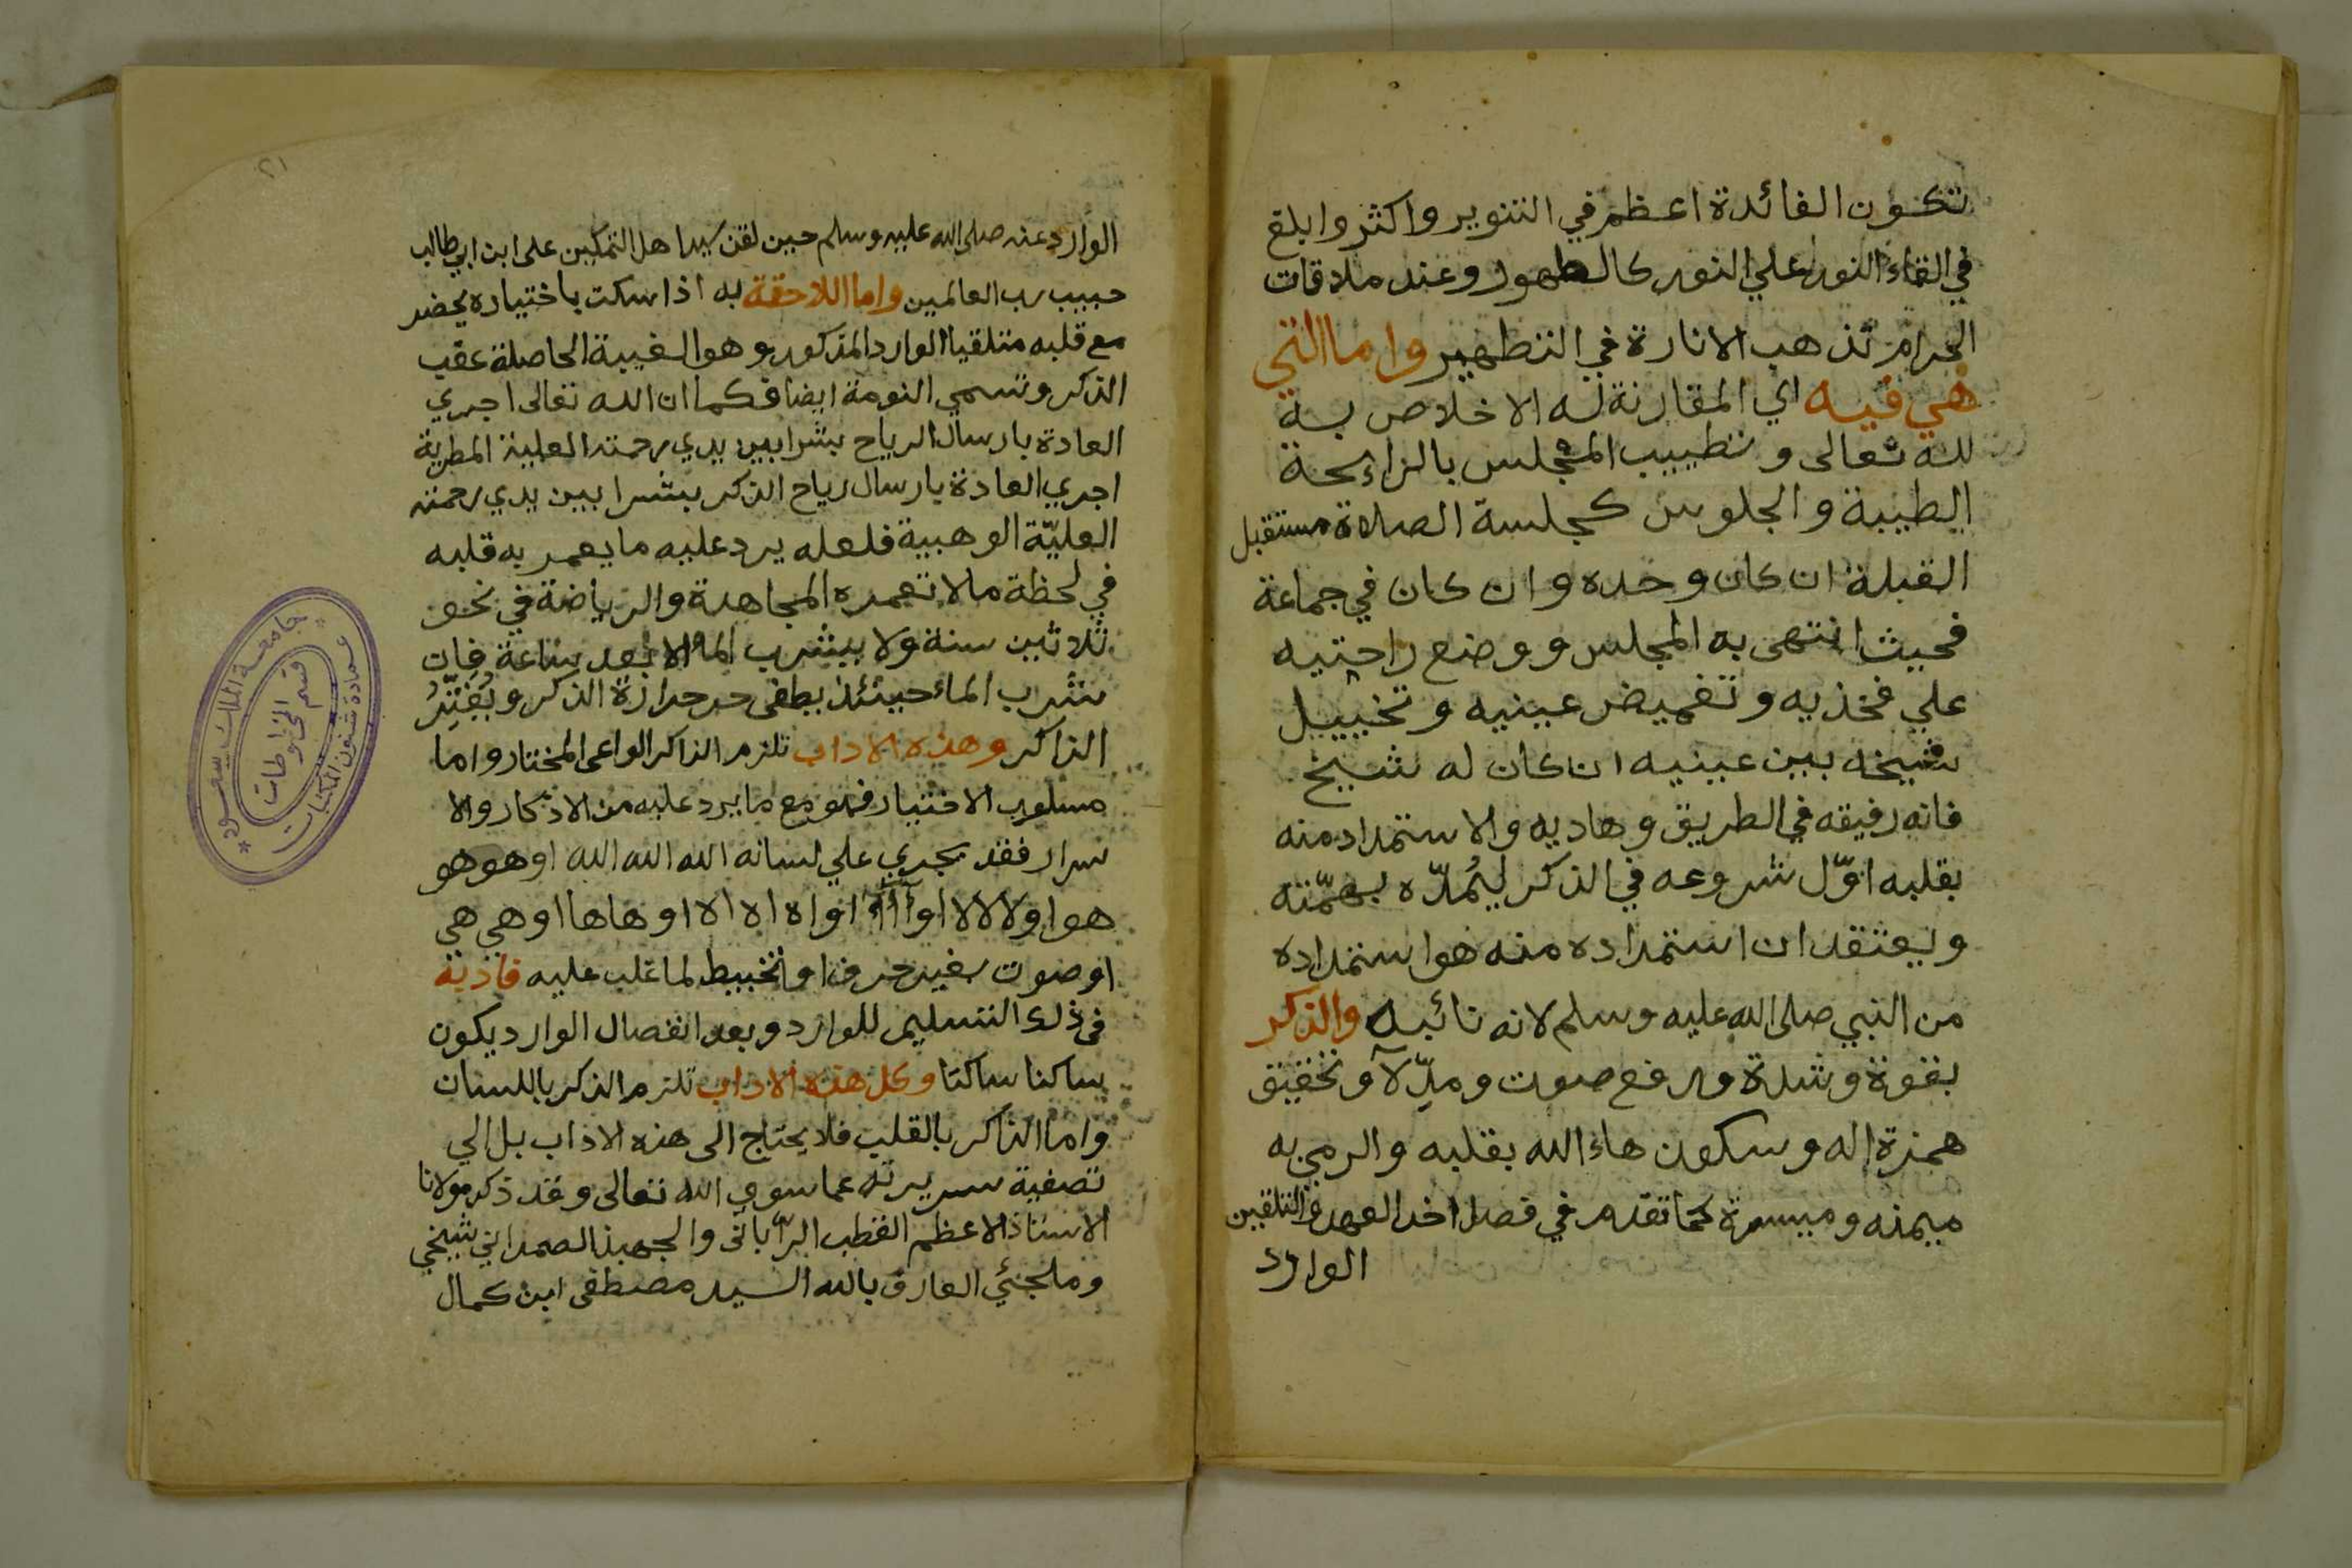 تكون الفائدة اعظم في التنوير واكثر وابلغ
في القاء النور علي النور كالطهور وعند ملاقات
الحرام تذهب الانارة في التطهير واما التي
هي فيه اي المقارنة له الاخلاص به
لله تعالى وتطييب المجلس بالرائحة
الطيبة والجلوس كجلسة الصلاة مستقبل
القبلة ان كان وحده وان كان في جماعة
فحيث انتهى به المجلس ووضع راحتيه
علي فخذيه وتغميض عينيه وتخييل
شيخه بين عينيه ان كان له شيخ
فانه رفيقه في الطريق وهاديه والاستمداد منه
بقلبه اوّل شروعه في الذكر ليُمدّه بهمّته
ويعتقد ان استمداده منه هو استمداده
من النبي صلى الله عليه وسلم لانه نائبه والذكر
بقوة وشدة ورفع صوت ومدّ لآ وتحقيق
همزة اله وسكون هاء الله بقلبه والرمي به
ميمنه وميسرة كما تقدم في فصل اخذ العهد والتلقين
الوارد
٢١
الوارد عنه صلى الله عليه وسلم حين لقن سيد اهل التمكين على ابن ابي طالب
حبيب رب العالمين واما اللاحقة به اذا سكت باختياره يحضر
مع قلبه متلقيا الوارد المذكور وهو الغيبة الحاصلة عقب
الذكر وتسمي النومة ايضا فكما ان الله تعالى اجري
العادة بارسال الرياح بشرا بين يدي رحمته العلية المطرية
اجري العادة بارسال رياح الذكر بشرا بين يدي رحمته
العليّة الوهبية فلعله يرد عليه ما يعمر به قلبه
في لحظة ما لا تعمره المجاهدة والرياضة في نحو
ثلاثين سنة ولا يشرب الما الا بعد ساعة فان
شرب الماء حينئذ يطفى حر حرارة الذكر ويُفتِّرُ
الذاكر وهذه الاداب تلزم الذاكر الواعى المختار واما
مسلوب الاختيار فهو مع ما يرد عليه من الاذكار والا
سرار فقد يجري علي لسانه الله الله الله او هو هو
هو او لا لا لا او آ آ آ او اه اه اه او ها ها او هي هي
او صوت بغير حرف او تخبيط لما غلب عليه فادبه
في ذلك التسليم للوارد وبعد انفصال الوارد يكون
ساكنا ساكتا وكل هذه الاداب تلزم الذكر باللسان
واما الذاكر بالقلب فلا يحتاج الى هذه الاداب بل الي
تصفية سريرته عما سوي الله تعالى وقد ذكر مولانا
الاستاذ الاعظم القطب الرّبانى والجهبذ الصمداني شيخي
وملجئي العارف بالله السيد مصطفى ابن كمال
جامعة الملك سعود
عمادة شئون المكتبات
قسم المخطوطات